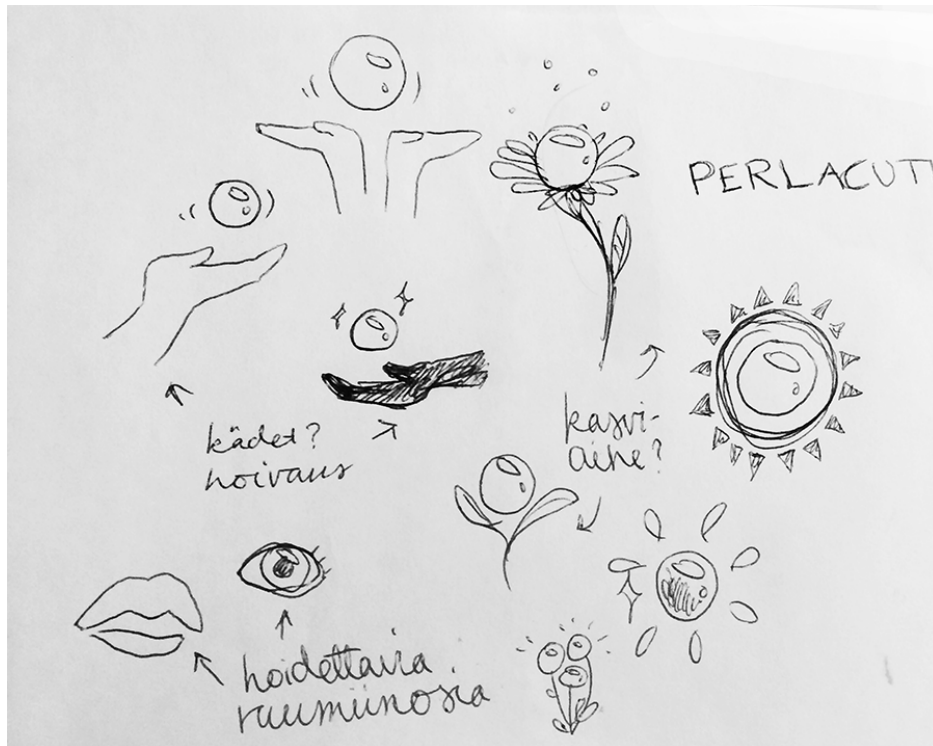 PERLACUTI
kädet?
hoivaus
kasvi-
aihe?
hoidettavia
ruumiinosia